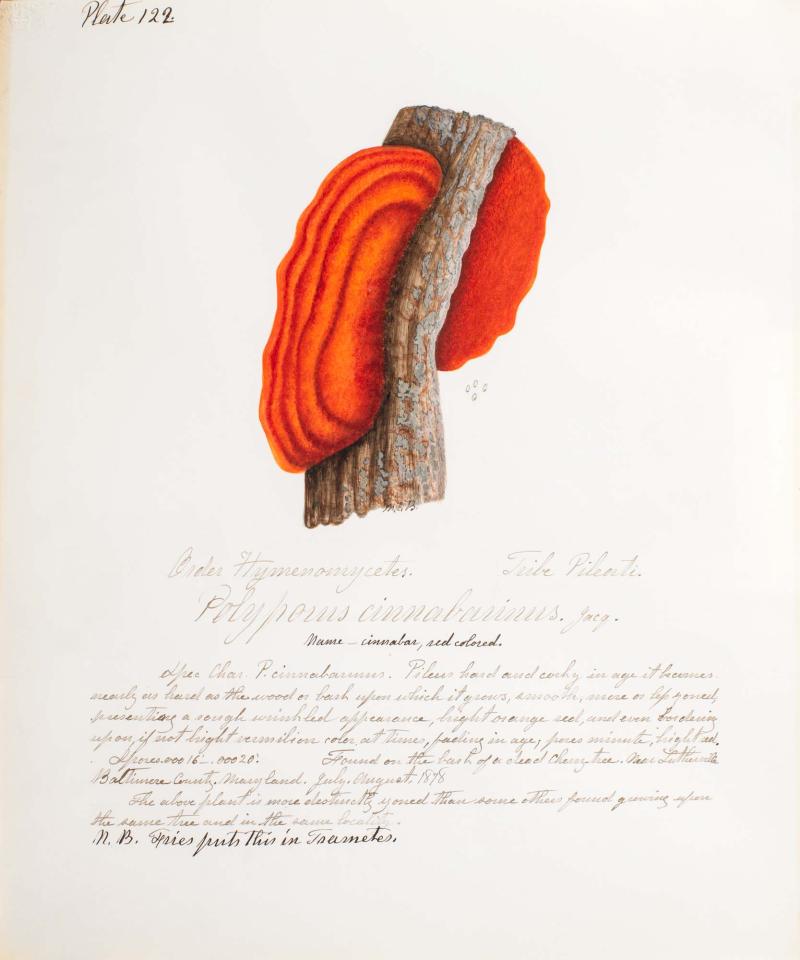 Plate 122.
M.E.B.
Order Hymenomycetes. Tribe Pileati.
Polyporus cinnabarinus. Jacq.
Name – cinnabar, red colored.
Spec Char. P. cinnabarinus. Pileus hard and corky, in age it becomes
nearly as hard as the wood or bark upon which it grows, smooth, more or less zoned,
presenting a rough wrinkled appearance, bright orange red, and even bordering
upon, if not bright vermilion color, at times, fading in age; pores minute, bright red.
Spores .00016 – .00020. Found on the bark of a dead cherry tree. Near Lutherville
Baltimore County, Maryland. July, August, 1878
The above plant is more distinctly zoned than some others found growing upon
the same tree and in the same locality.
N. B. Fries puts this in Trametes.